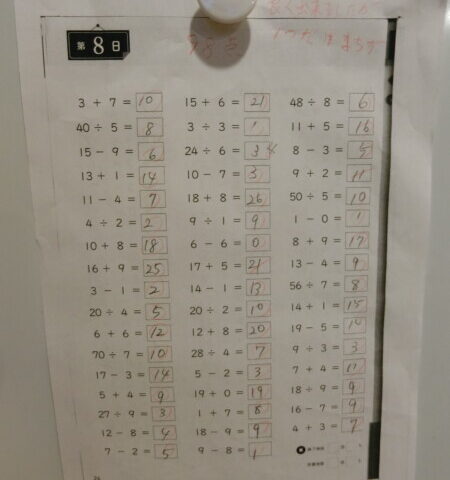 第8日
98点
3 + 7 = 10 15 + 6 = 21 48 ÷ 8 = 6
40 ÷ 5 = 8 3 ÷ 3 = 1 11 + 5 = 16
15 - 9 = 6 24 ÷ 6 = 3 4 8 - 3 = 5
13 + 1 = 14 10 - 7 = 3 9 + 2 = 11
11 - 4 = 7 18 + 8 = 26 50 ÷ 5 = 10
4 ÷ 2 = 2 9 ÷ 1 = 9 1 - 0 = 1
10 + 8 = 18 6 - 6 = 0 8 + 9 = 17
16 + 9 = 25 17 + 5 = 21 13 - 4 = 9
3 - 1 = 2 14 - 1 = 13 56 ÷ 7 = 8
20 ÷ 4 = 5 20 ÷ 2 = 10 14 + 1 = 15
6 + 6 = 12 12 + 8 = 20 19 - 5 = 14
70 ÷ 7 = 10 28 ÷ 4 = 7 9 ÷ 3 = 3
17 - 3 = 14 5 - 2 = 3 7 + 4 = 11
5 + 4 = 9 19 + 0 = 19 18 ÷ 9 = 9
27 ÷ 9 = 3 1 + 7 = 8 16 - 7 = 9
12 - 8 = 4 18 - 9 = 9 4 + 3 = 7
7 - 2 = 5 9 - 8 = 1